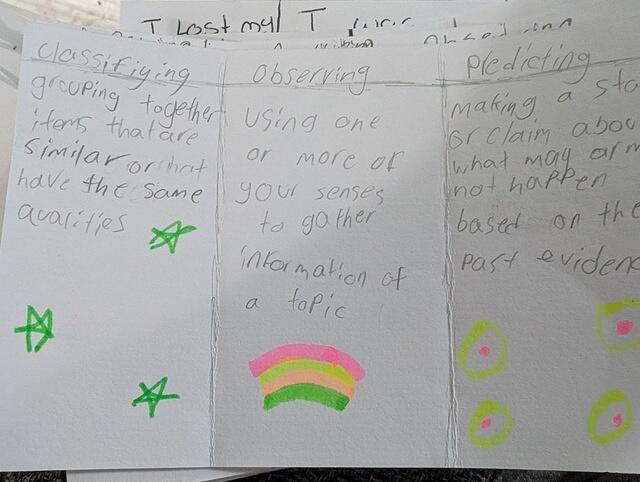 I Lost my T
Classifiying
grouping together
items that are
similar or that
have the same
qualities
Observing
Using one
or more of
your senses
to gather
information of
a topic
Predicting
making a sta
or claim abou
what may or m
not happen
based on the
past evidenc